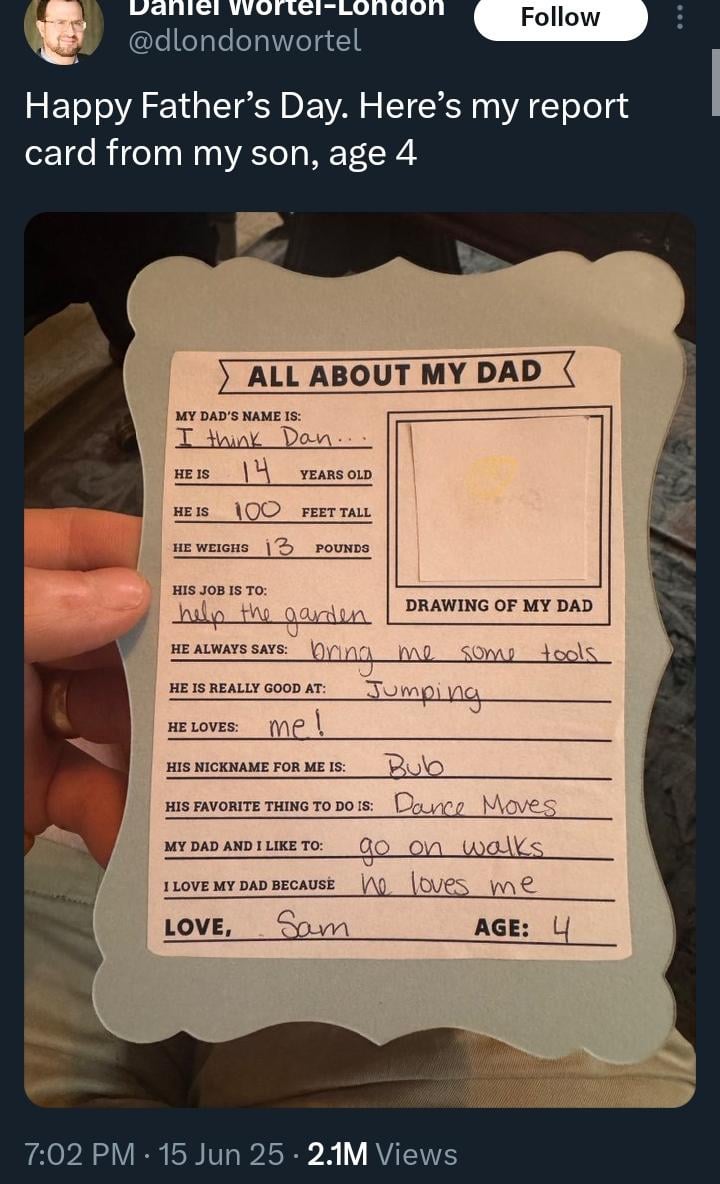 Daniel Wortel-London
Follow
@dlondonwortel
Happy Father's Day. Here's my report
card from my son, age 4
ALL ABOUT MY DAD
MY DAD'S NAME IS:
I think Dan...
HE IS 14 YEARS OLD
HE IS 100 FEET TALL
HE WEIGHS 13 POUNDS
HIS JOB IS TO:
help the garden
DRAWING OF MY DAD
HE ALWAYS SAYS: bring me some tools
HE IS REALLY GOOD AT: Jumping
HE LOVES: me!
HIS NICKNAME FOR ME IS: Bub
HIS FAVORITE THING TO DO IS: Dance Moves
MY DAD AND I LIKE TO: go on walks
I LOVE MY DAD BECAUSE he loves me
LOVE, Sam AGE: 4
7:02 PM · 15 Jun 25 · 2.1M Views